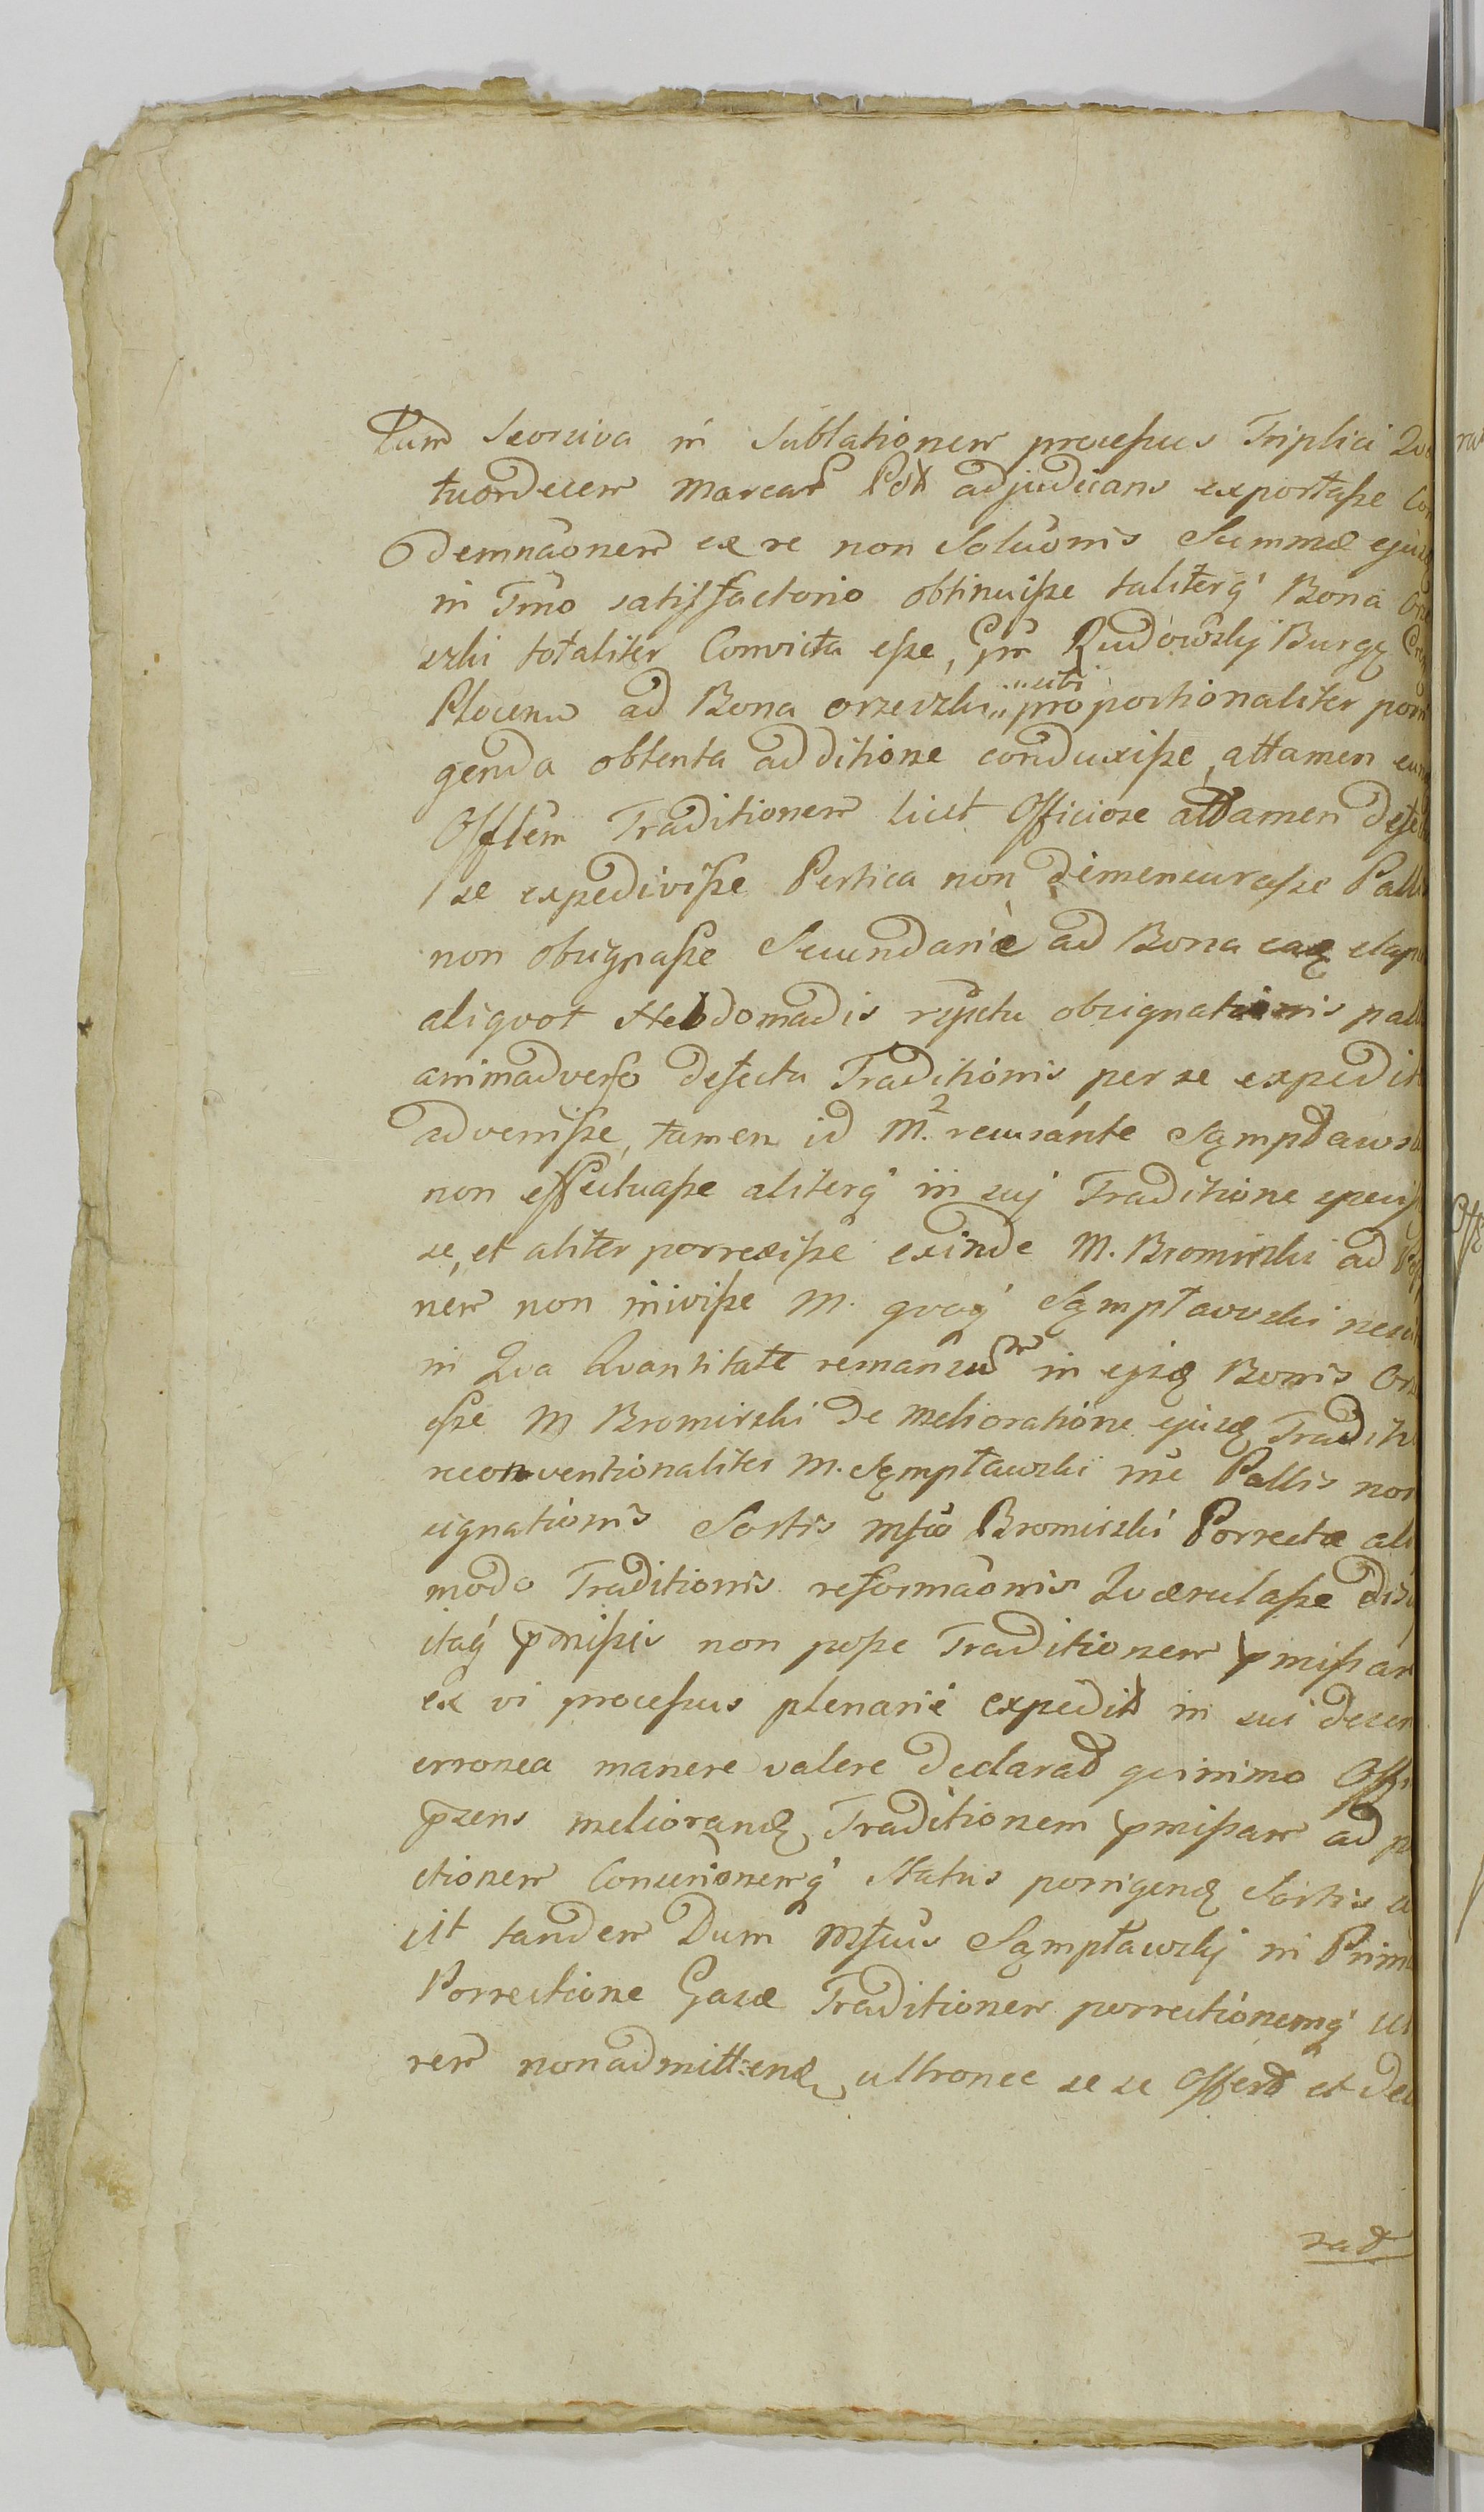 tum Seorsiva in Sublationem processus Triplici Qua
tuordecem Marcar Pol adjudicans exportasse Con
demnãonem ex re non Solũonis Summæ ejusd
in Tmõ satisfactorio obtinuisse taliterq' Bona Orze
szki totaliter Convicta esse, Gñr Rudowskj Burgẹ
Plocens ad Bona orzeszki ubi proportionaliter porri
genda obtenta additione conduxisse, attamen eun
Offlem Traditionem licet Officiose attamen defe
se expedivisse Pertica non dimensurasse Pall
non obsignasse Secundariè ad Bona eaq elaps
aliqvot Hebdomadis rspctu obsignationis pal
animadverso defectu Traditionis per se expedit
advenisse, tamen id M.2 recusánte Sąmpławs
non effectuasse aliterq' in suj Traditione
se, et aliter porrexisse exinde M. Bromirski ad
nem non inivisse M. qvoq' Sąmpławski
in Qva Qvantitate remansu in ejsq Bonis Orz
esse M Bromirski de melioratione ejusq Tradit
reconventionaliter M. Sąmpławski Pallis non
signationis Sortis Mfco Bromirski Porrectæ ali
modo Traditionis reformãonis Qværulasse
itaq' pmissis non posse Traditionem pmissam
ex vi processus plenariè expedit in sui decer
erronea manere valere declarat quinimo Offi
psens meliorand Traditionem pmissam ad
ctionem Concusionemq' Status porrigend Sortis
sit tandem Dum Mfcus Sąmpławskj in Prima
Porrectione Gazæ Traditionem porrectionemq'
rem nonadmittend ultronee se se Offert et dec
rat